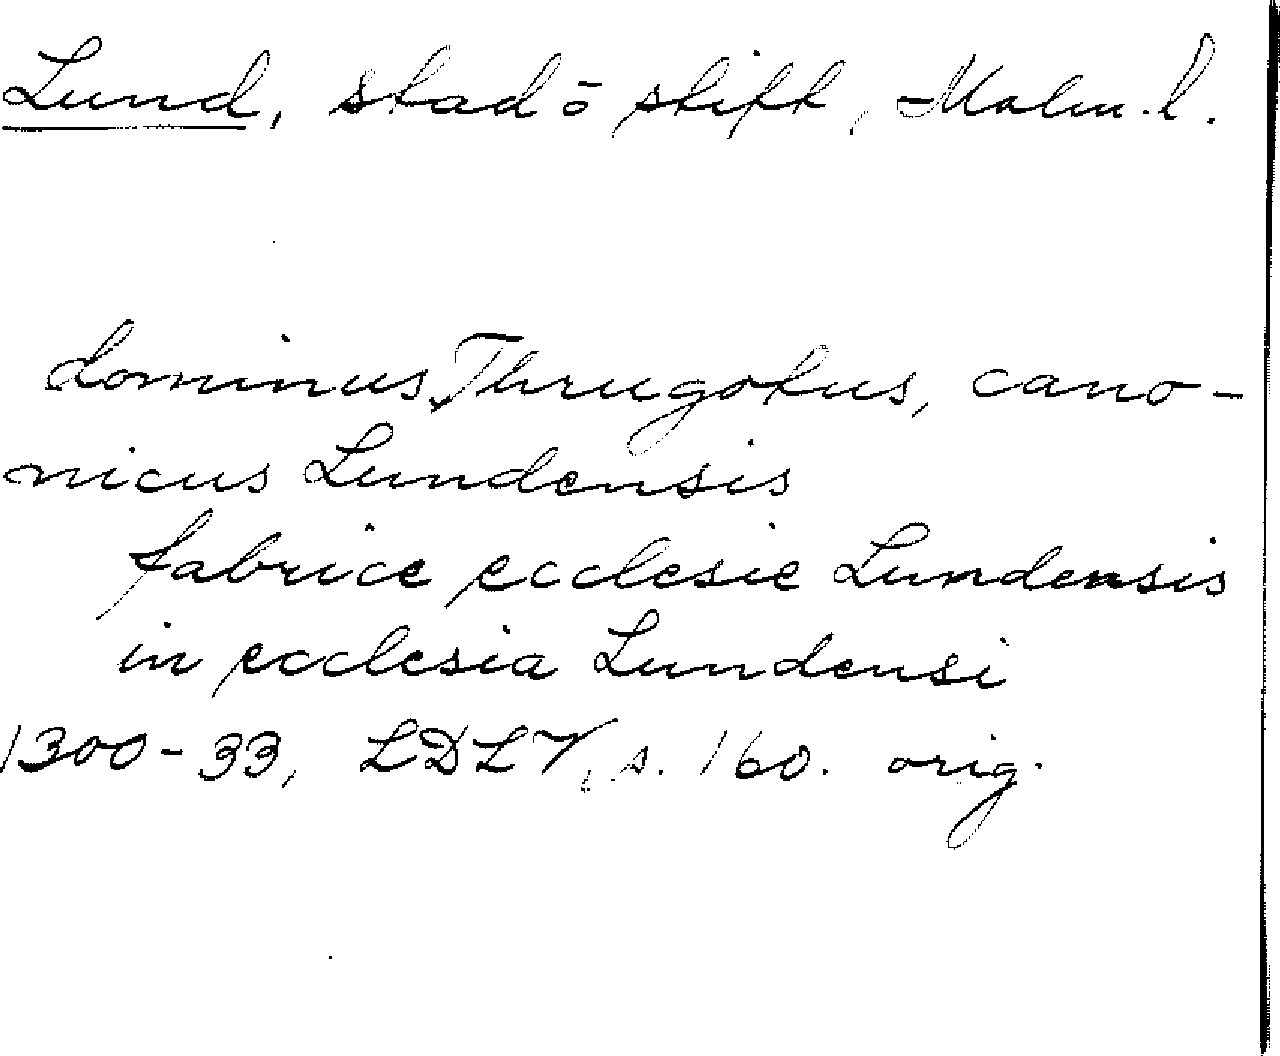 Lund, stad o stift, Malm. l.
dominus Thrugotus, cano-
nicus Lundensis
fabrice ecclesie Lundensis
in ecclesia Lundensi
1300-33, LDLV, s. 160. orig.